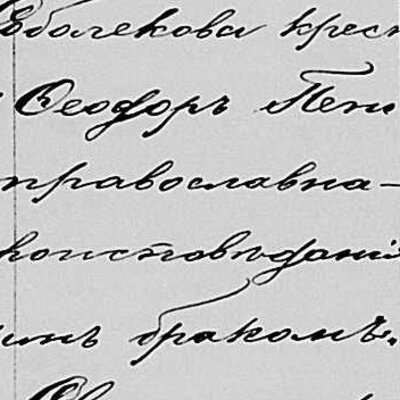 болекова крес
Ѳеодоръ Пени
православна-
роисповѣдані
инъ бракомъ.